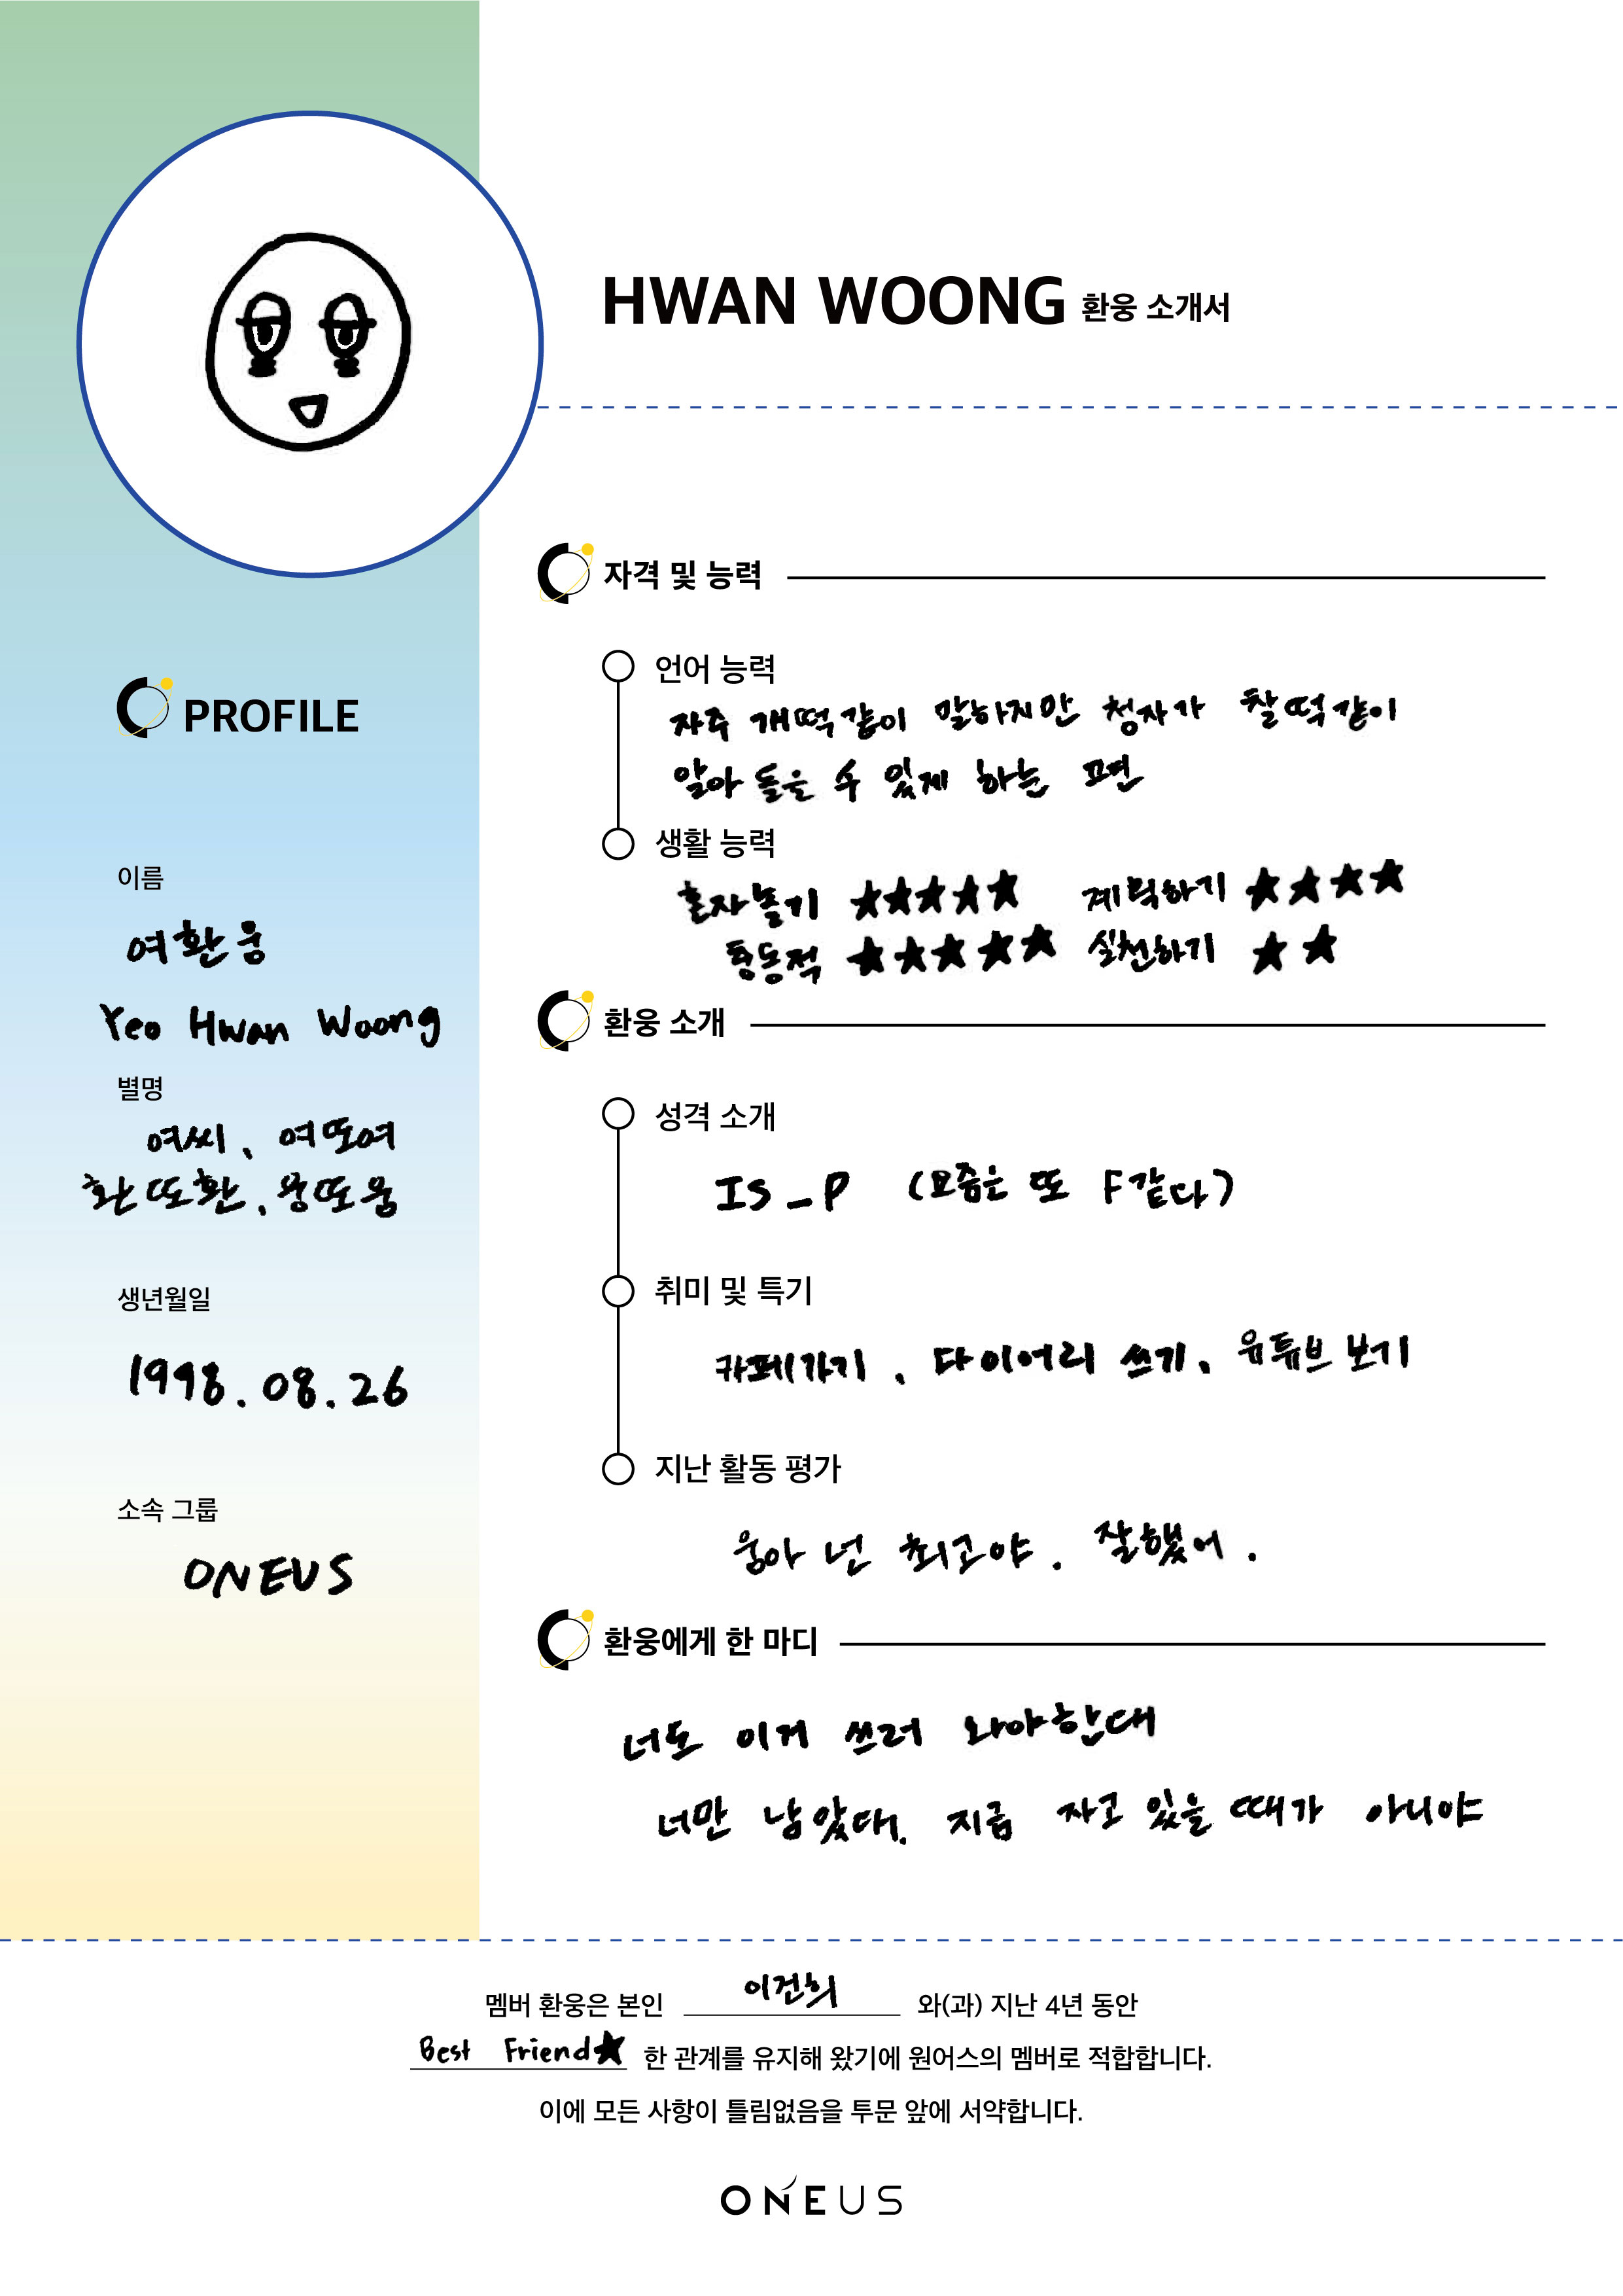 HWAN WOONG 환웅 소개서
PROFILE
이름
여환웅
Yeo Hwan Woong
별명
여씨, 여또여
환또환, 웅또웅
생년월일
1998.08.26
소속 그룹
ONEUS
자격 및 능력
언어 능력
자주 개떡같이 말하지만 청자가 찰떡같이
알아 들을 수 있게 하는 편
생활 능력
혼자놀기 ★★★★★ 계획하기 ★★★★
충동적 ★★★★★ 실천하기 ★★
환웅 소개
성격 소개
IS_P (요즘은 또 F같다)
취미 및 특기
카페가기, 다이어리 쓰기, 유튜브 보기
지난 활동 평가
웅아 넌 최고야. 잘했어.
환웅에게 한 마디
너도 이거 쓰러 와야한대
너만 남았대. 지금 자고 있을 때가 아니야
멤버 환웅은 본인 이건희 와(과) 지난 4년 동안
Best Friend★ 한 관계를 유지해 왔기에 원어스의 멤버로 적합합니다.
이에 모든 사항이 틀림없음을 투문 앞에 서약합니다.
ONEUS